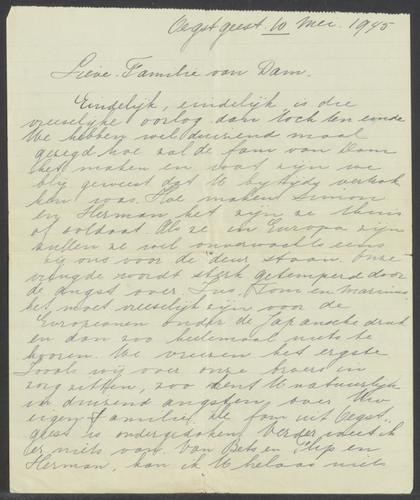 Oegstgeest 10 Mei. 1945
Lieve Familie van Dam.
Eindelijk, eindelijk is die
vreeselijke oorlog dan toch ten einde
We hebben wel duizend maal
gezegd hoe zal de fam van Dam
het maken en wat zijn we
blij geweest dat U bijtijds vertrok
ken was. Hoe maken Simon
en Herman het zijn ze thuis
of soldaat. Als ze in Europa zijn
zullen ze wel onverwachts eens
bij ons voor de deur staan. Onze
vreugde wordt sterk getemperd door
de angst over Tom en Marinus
het moet vreeselijk zijn voor de
Europeanen onder de Japansche druk
en dan zoo heelemaal niets te
hooren. We vreezen het ergste
Zooals wij over onze broers in
zorg zitten, zoo bent U natuurlijk
in duizend angsten over Uw
eigen familie. De fam uit Oegst-
geest is ondergedoken, verder weet ik
er niets van. Van Bets en Flip en
Herman, kan ik U helaas niets